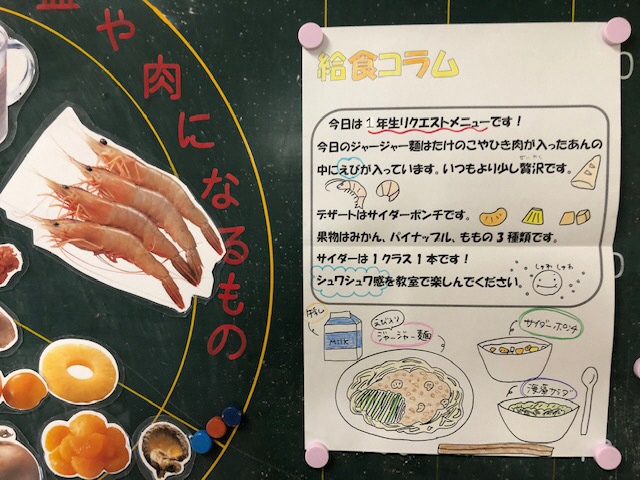 血や肉になるもの
給食コラム
今日は1年生リクエストメニューです！
今日のジャージャー麺はたけのこやひき肉が入ったあんの
中にえびが入っています。いつもより少し贅沢です。
ぜいたく
デザートはサイダーポンチです。
果物はみかん、パイナップル、ももの3種類です。
サイダーは1クラス1本です！
シュワシュワ感を教室で楽しんでください。
しゅわ しゅわ
牛乳
Milk
えび入り
ジャージャー麺
サイダーポンチ
海藻サラダ